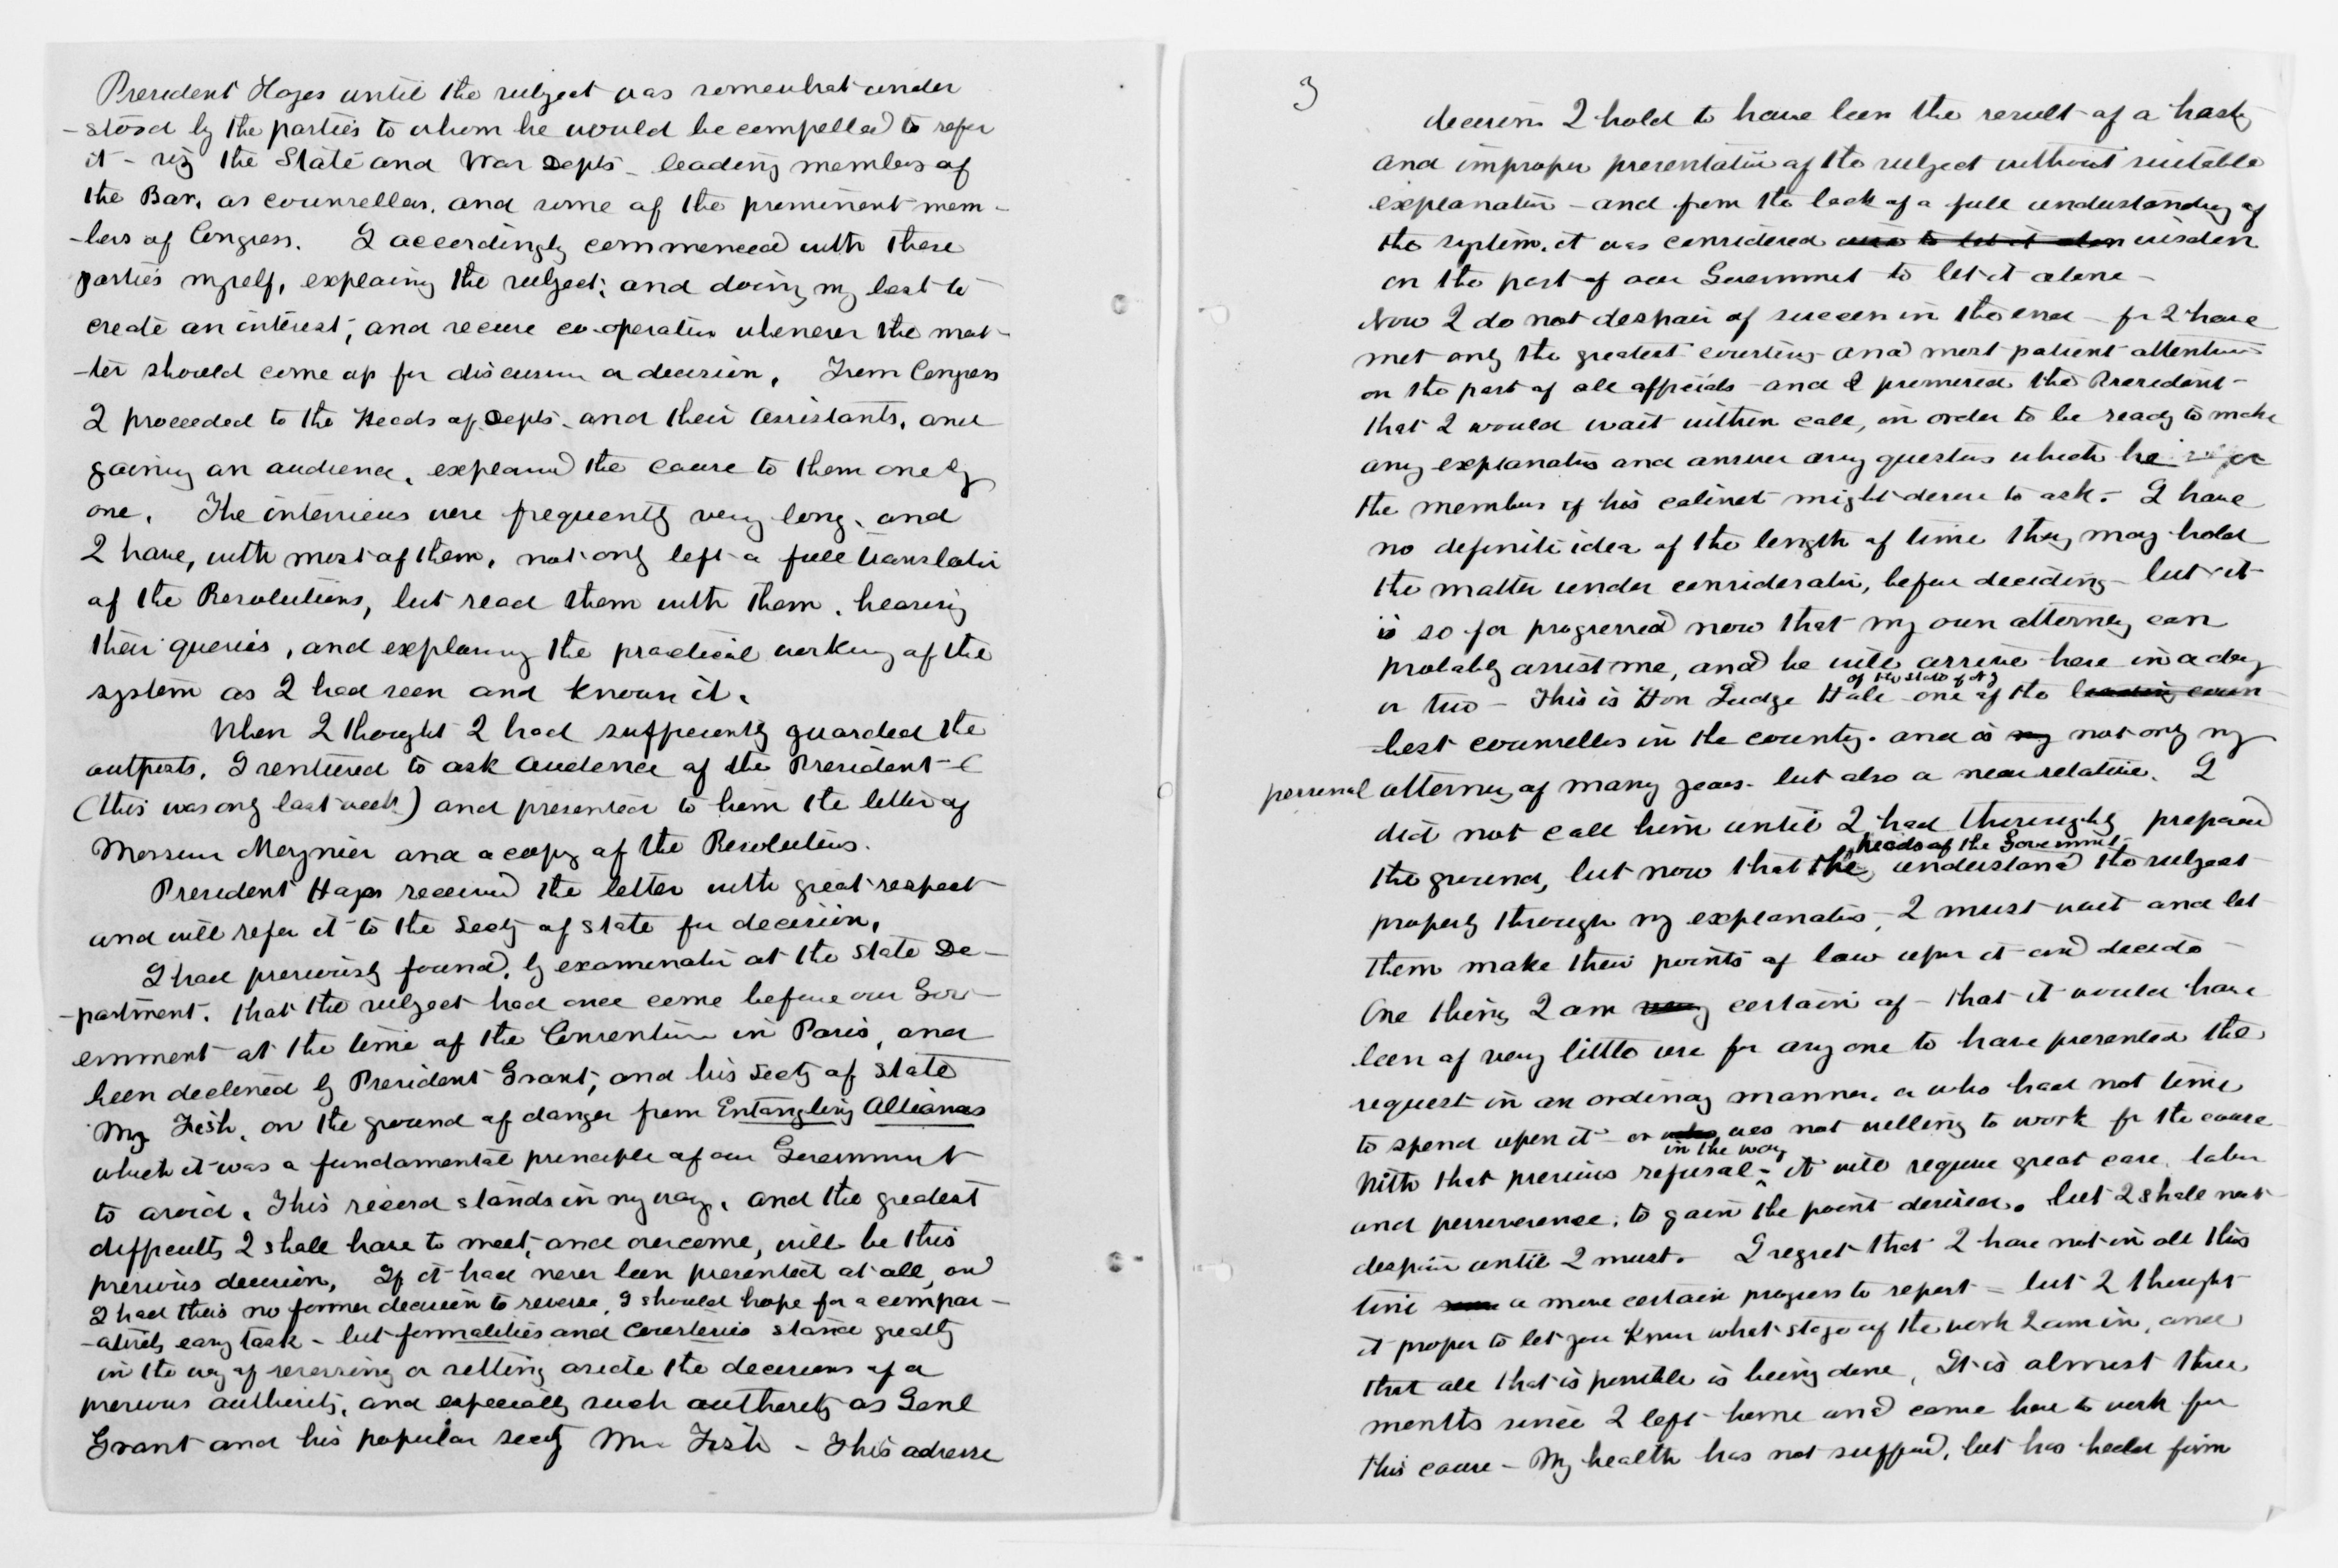 President Hayes until the subject was somewhat under
-stood by the parties to whom he would be compelled to refer
it - viz the State and War Depts - leading members of
the Bar, as counsellors, and some of the prominent mem-
-bers of Congress. I accordingly commenced with these
parties myself, explaing the subject, and doing my best to
create an interest, and secure co-operation whenever the mat-
-ter should come up for discussion or decision. From Congress
I proceeded to the Heads of Depts. and their assistants, and
gaining an audience, explained the cause to them one by
one. The interviews were frequently very long, and
I have, with most of them, not only left a full translation
of the Resolutions, but read them with them, hearing
their queries, and explaining the practical working of the
system as I had seen and known it.
When I thought I had sufficiently guarded the
outposts, I ventured to ask audience of the President - (
(this was only last week) and presented to him the letter of
Monsieur Moynier and a copy of the Resolutions.
President Hayes received the letter with great respect
and will refer it to the Secty of State for decision.
I had previously found, by examination at the State De-
-partment, that the subject had once come before our Gov-
ernment at the time of the Convention in Paris, and
been declined by President Grant, and his Secty of State
Mr. Fish, on the ground of danger from Entangling Alliances
which it was a fundamental principle of our Government
to avoid. This record stands in my way, and the greatest
difficulty I shall have to meet, and overcome, will be this
previous decision. If it had never been presented at all, and
I had thus no former decision to reverse, I should hope for a compar-
-atively easy task - but formalities and courtesies stand greatly
in the way of reversing or setting aside the decisions of a
previous authority, and especially such authority as Genl
Grant and his popular secty Mr Fish - This adverse
3
decision I hold to have been the result of a hasty
and improper presentation of the subject without suitable
explanation - and from the lack of a full understanding of
the system, it was considered wise to let it alone wisdom
on the part of our Government to let it alone -
Now I do not despair of success in the end - for I have
met only the greatest courtesy and most patient attention
on the part of all officials - and I promised the President -
that I would wait within call, in order to be ready to make
any explanation and answer any questions which he or
the members of his cabinet might desire to ask. I have
no definite idea of the length of time they may hold
the matter under consideration, before deciding - but it
is so far progressed now that my own attorney can
probably assist me, and he will arrive here in a day
of the State of NY
or two - This is Hon Judge Hale one of the leading coun
best counsellors in the country. and is my not only my
personal attorney of many years - but also a near relative. I
did not call him until I had thoroughly prepared
heads of the Government
the ground, but now that the understand the subject
properly through my explanations, I must wait and let
them make their points of law upon it and decide
One thing I am very certain of - that it would have
been of very little use for any one to have presented the
request in an ordinary manner, or who had not time
to spend upon it - or who was not willing to work for the cause
in the way
With that previous refusal - it will require great care, labor
and perseverence, to gain the point desired. but I shall not
despair until I must. I regret that I have not in all this
time a more certain progress to report - but I thought
it proper to let you know what stage of the work I am in, and
that all that is possible is being done. It is almost three
months since I left home and came here to work for
this cause - My health has not suffered, but has held firm